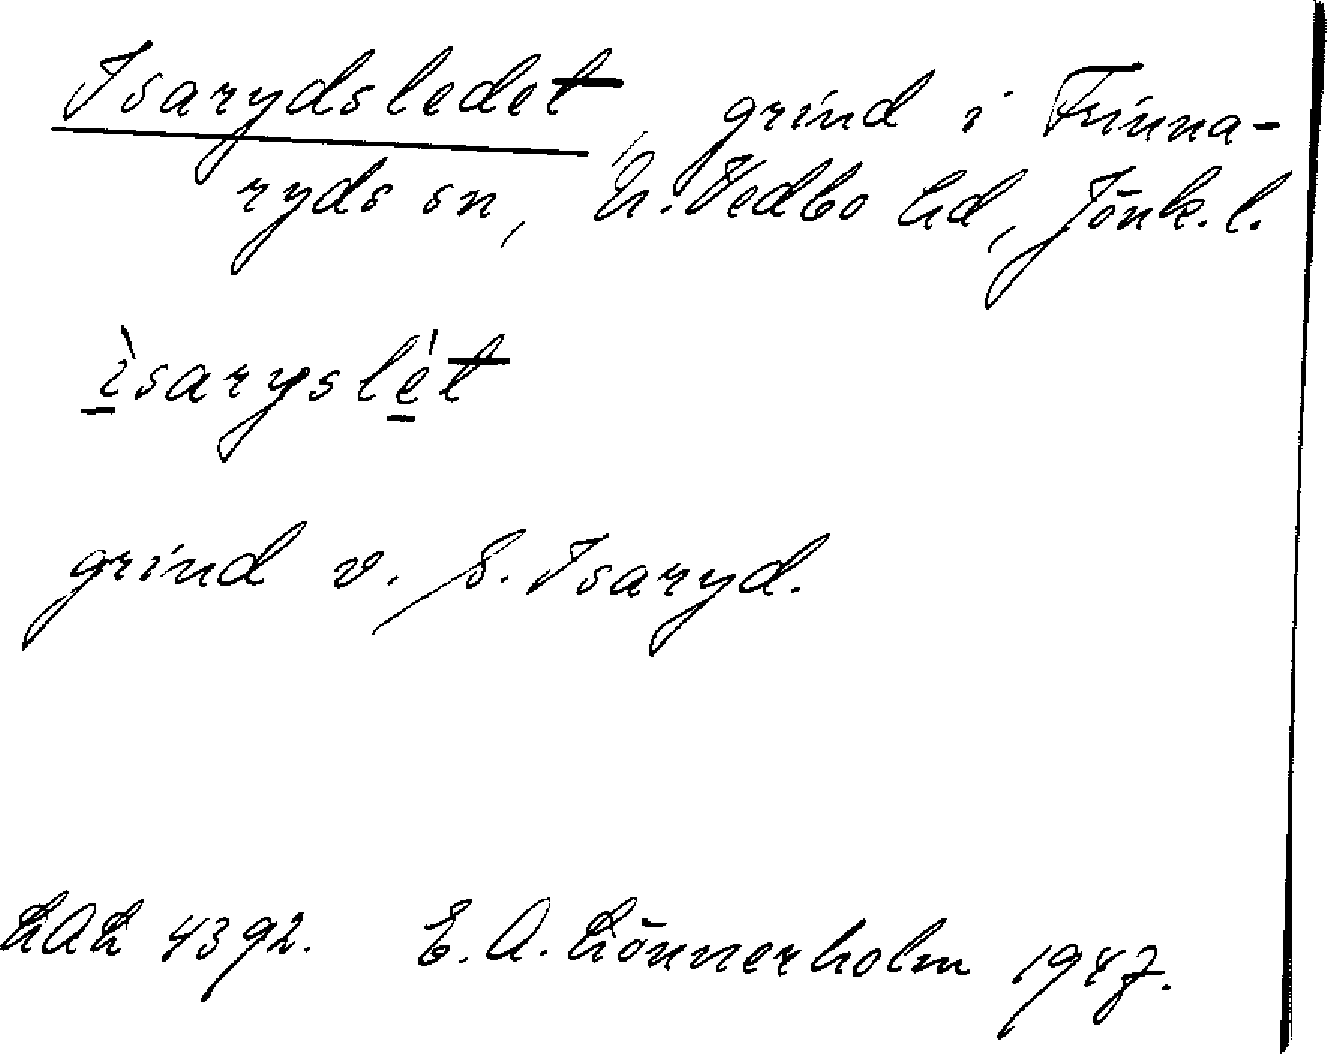 Isarydsledet, grind i Frinna-
ryds sn, N. Vedbo hd, Jönk. l.
ìsaryslét
grind v. S. Isaryd.
LAL 4392. E. A. Lönnerholm 1947.